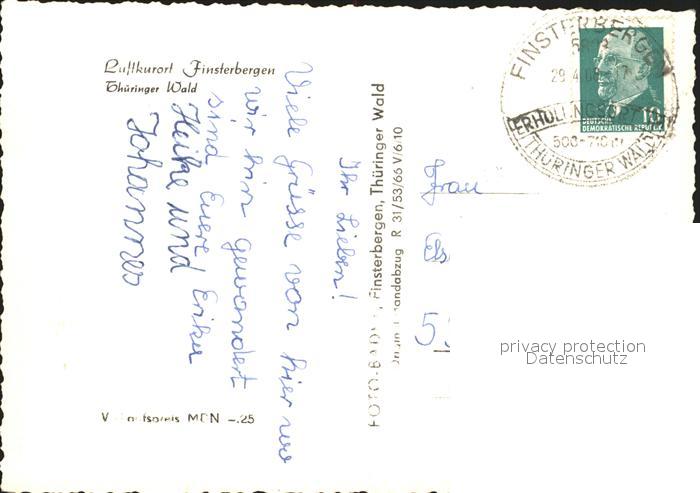 Luftkurort Finsterbergen
Thüringer Wald
Ihr Lieben!
Viele Grüsse von hier wo
wir hin gewandert
sind Eure Erika
Heike und
Johannes
MDN -.25
Finsterbergen, Thüringer Wald
R 31/53/66 V/6/10
Frau
Els
5
FINSTERBERGEN
29.4.
ERHOLUNGSORT
500-710 m
THÜRINGER WALD
10
DEUTSCHE
DEMOKRATISCHE REPUBLIK
privacy protection
Datenschutz